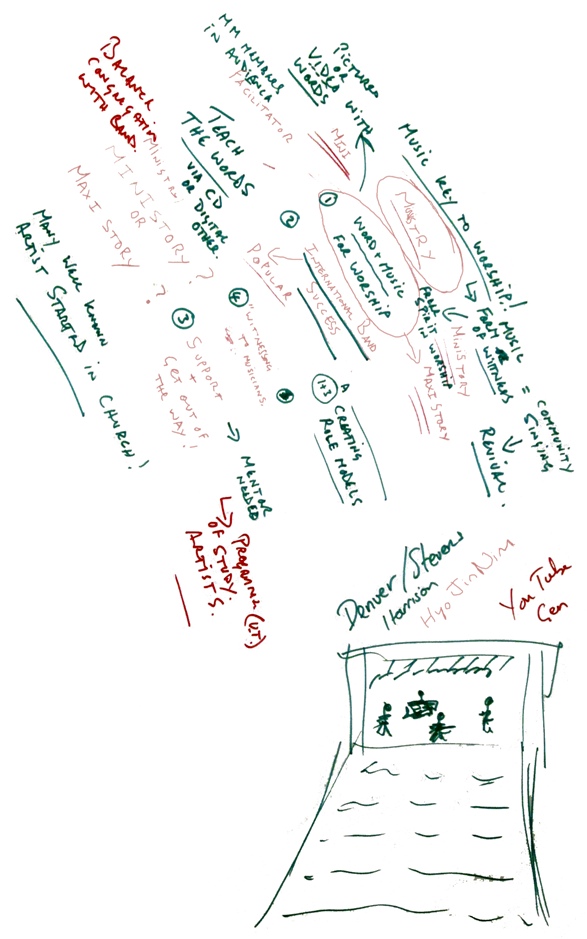 MM MEMBERS
IN AUDIENCE
FACILITATOR
PICTURES
OR
VIDEO WITH
WORDS
MINI
BALANCE
CONGREGATION
WITH BAND.
TEACH
THE WORDS
VIA CD
OR DIGITAL
OTHER.
MINISTORY
OR
MAXI STORY
?
?
MUSIC KEY TO WORSHIP!
MUSIC = COMMUNITY
SINGING
FORM OF WITNESS
REVIVAL.
MINISTRY
①
WORD + MUSIC
FOR WORSHIP
②
INTERNATIONAL BAND
SUCCESS
POPULAR
SPIRIT IN WORSHIP
MINISTORY
MAXISTORY
④
"WITNESSING
TO MUSICIANS.
③
SUPPORT
+
GET OUT OF
THE WAY!
1+3
A
CREATING
ROLE MODELS
MENTOR
NEEDED
PROGRAMME (U.T.)
OF STUDY.
ARTISTS.
MANY WELL KNOWN
ARTIST STARTED IN CHURCH!
Denver/Stevens
Harrison
Hyo Jin Nim
YouTube
Gen